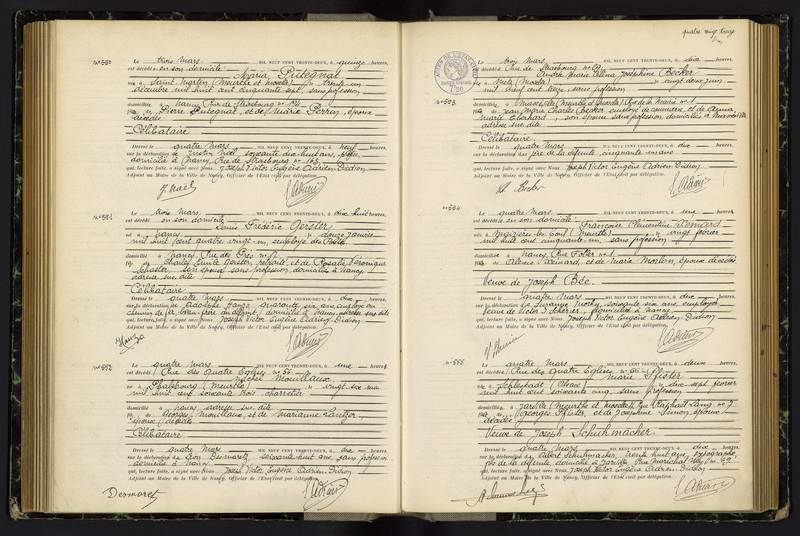 N° 550
Le trois Mars MIL NEUF CENT TRENTE-DEUX, à quinze heures,
est décédée en son domicile
Maria Putegnat
née à Saint Martin (Meurthe et Moselle) trente un
décembre mil huit cent cinquante sept, sans profession
domiciliée à Nancy, Rue de Strasbourg n°
Pierre Putegnat, et de Marie Perrin, époux
décédés
Célibataire
Dressé le quatre Mars MIL NEUF CENT TRENTE-DEUX, à neuf heures,
sur la déclaration de Noël, soixante dix huit ans,
domicilié à Nancy, Rue de Strasbourg n°
qui, lecture faite, a signé avec Nous Joseph Victor Eugène Adrien Didion
Adjoint au Maire de la Ville de Nancy, Officier de l'Etat civil par délégation.
N° 551
Le trois Mars MIL NEUF CENT TRENTE-DEUX, à dix huit heures,
est décédé en son domicile
Louis Frédéric Gerster
né à Nancy douze Janvier
mil huit cent quatre vingt un, employé des Postes
Nancy, Rue des Prés n°
Charles Emile Gerster, retraité, et de Rosalie Véronique
son épouse sans profession, domiciliés à Nancy
adresse sus dite
Célibataire
Dressé le quatre Mars MIL NEUF CENT TRENTE-DEUX, à dix heures,
sur la déclaration de Adolphe quarante six ans, employé au
chemin de fer, domicilié à Nancy, adresse sus dite
qui, lecture faite, a signé avec Nous Joseph Victor Eugène Adrien Didion
Adjoint au Maire de la Ville de Nancy, Officier de l'Etat civil par délégation.
N° 552
Le quatre Mars MIL NEUF CENT TRENTE-DEUX, à une heures,
est décédé Rue des Quatre Eglises n° 57
Michel Mouillaux
né à Phalsbourg (Meurthe) vingt six mai
mil huit cent soixante trois, charretier
domicilié à Nancy adresse sus dite
Georges Mouillaux, et de Marianne
époux décédés
Célibataire
Dressé le quatre Mars MIL NEUF CENT TRENTE-DEUX, à dix heures,
sur la déclaration de Léon soixante huit ans, sans profession
domicilié à Nancy
qui, lecture faite, a signé avec Nous Joseph Victor Eugène Adrien Didion
Adjoint au Maire de la Ville de Nancy, Officier de l'Etat civil par délégation.
quatre vingt
Le trois Mars MIL NEUF CENT TRENTE-DEUX, à dix heures,
est décédée Rue de Strasbourg n°
Marie Joséphine Becker
née à Metz (Moselle) vingt deux Juin
mil neuf cent treize, sans profession
N° 553
Rue de la Mairie n° 1
Jean Marie Charles Becker employé de commerce, et de
Marie Eberhard, son épouse sans profession, domiciliés à
adresse sus dite
Célibataire
Dressé le quatre Mars MIL NEUF CENT TRENTE-DEUX, à dix heures,
sur la déclaration du père de la défunte, cinquante
qui, lecture faite, a signé avec Nous Joseph Victor Eugène Adrien Didion
Adjoint au Maire de la Ville de Nancy, Officier de l'Etat civil par délégation.
N° 554
Le quatre Mars MIL NEUF CENT TRENTE-DEUX, à une heures,
est décédée en son domicile
Françoise Clémentine
née à Maizières (Meurthe) vingt février
mil huit cent cinquante un, sans profession
domiciliée à Nancy, Rue
et de Marie époux décédés
Veuve de Joseph Bée.
Dressé le quatre Mars MIL NEUF CENT TRENTE-DEUX, à dix heures,
sur la déclaration de Suzanne soixante six ans, employée
veuve de Victor domiciliée à Nancy
qui, lecture faite, a signé avec Nous Joseph Victor Eugène Adrien Didion
Adjoint au Maire de la Ville de Nancy, Officier de l'Etat civil par délégation.
N° 555
Le quatre Mars MIL NEUF CENT TRENTE-DEUX, à deux heures,
est décédée Rue des Quatre Eglises n°
Marie Pfister
née à Schlestadt (Alsace) dix sept février
mil huit cent soixante cinq, sans profession
domiciliée à Jarville (Meurthe et Moselle) Rue
Georges Pfister, et de Joséphine Simon, époux
décédés
Veuve de Joseph Schuhmacher.
Dressé le quatre Mars MIL NEUF CENT TRENTE-DEUX, à dix heures,
sur la déclaration de Albert Schuhmacher, trente huit ans,
fils de la défunte, domicilié à Jarville, Rue Maréchal
qui, lecture faite, a signé avec Nous Joseph Victor Eugène Adrien Didion
Adjoint au Maire de la Ville de Nancy, Officier de l'Etat civil par délégation.